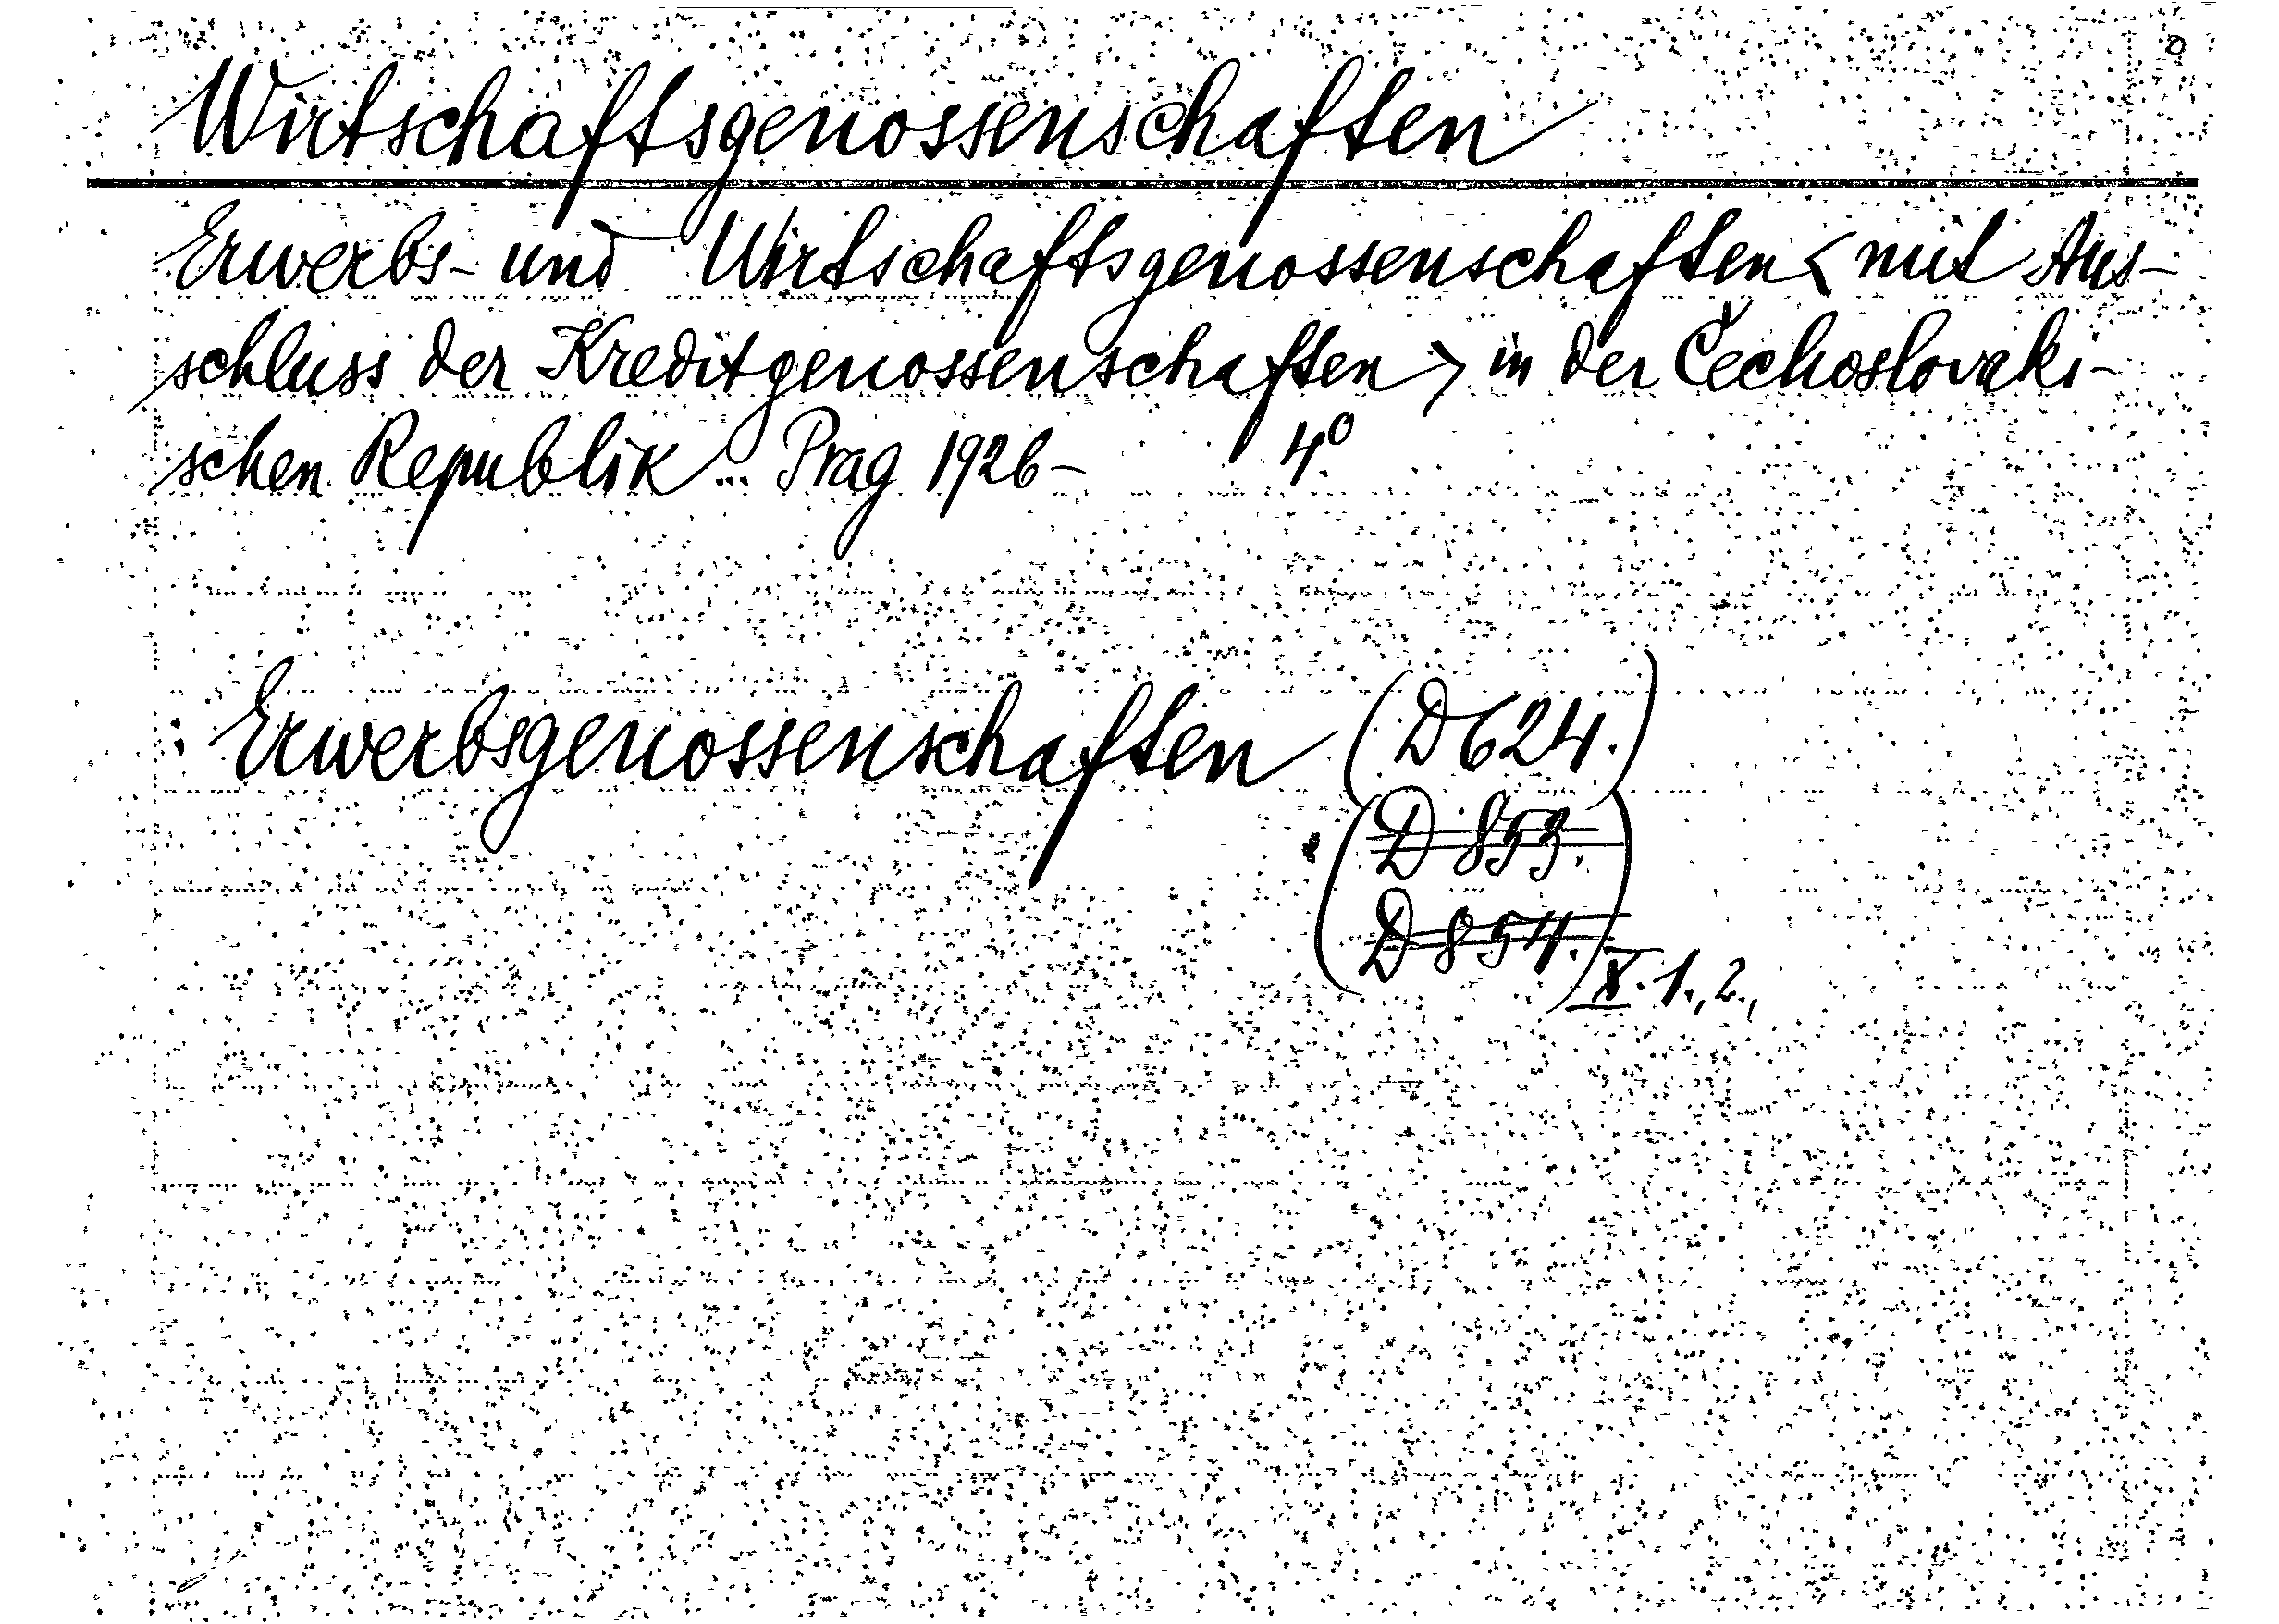 Wirtschaftsgenossenschaften
Erwerbs- und Wirtschaftsgenossenschaften < mit Aus-
schluss der Kreditgenossenschaften > in der Čechoslovaki-
schen Republik ... Prag 1926- 4.°
Erwerbsgenossenschaften (D 624.)
(D 853.
D 854.)
X. 1., 2.,